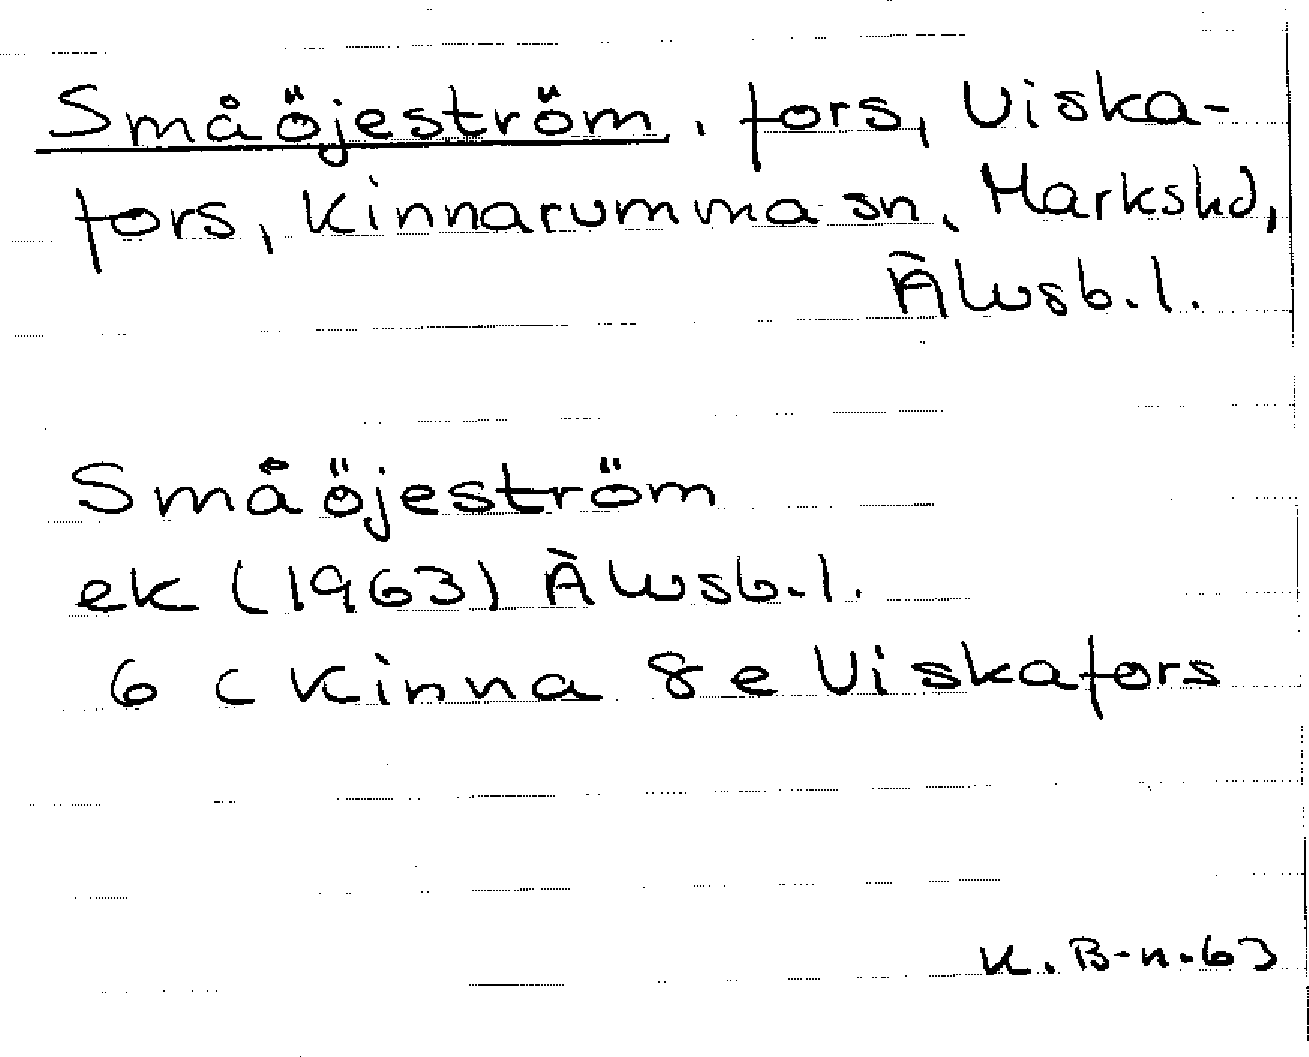 Småöjeström, fors, Viska-
fors, Kinnarumma sn, Markshd,
Älvsb.l.
Småöjeström
ek (1963) Älvsb.l.
6 c Kinna 8 e Viskafors
K. B-n. 63